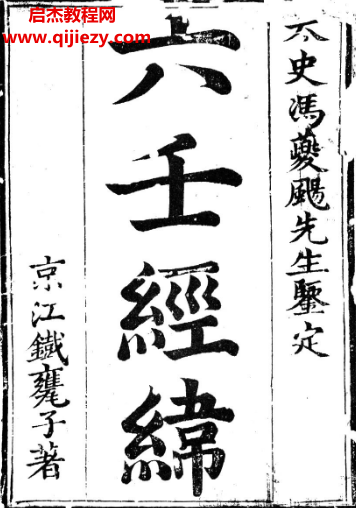 启杰教程网
www.qijiezy.com
太史馮夔颺先生鑒定
六壬經緯
京江鐵甕子著